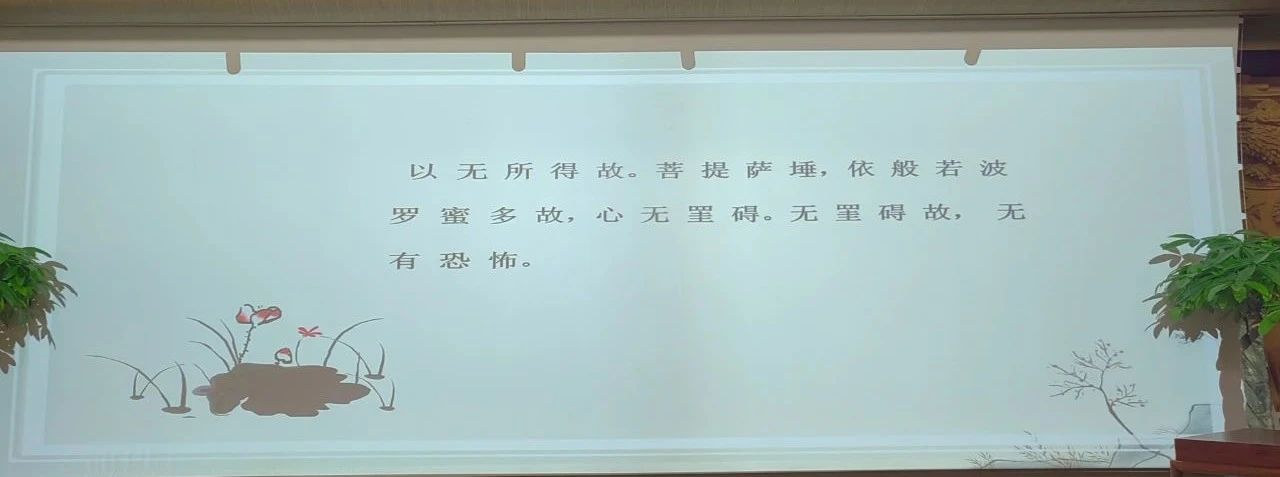 以无所得故。菩提萨埵，依般若波
罗蜜多故，心无罣碍。无罣碍故，无
有恐怖。